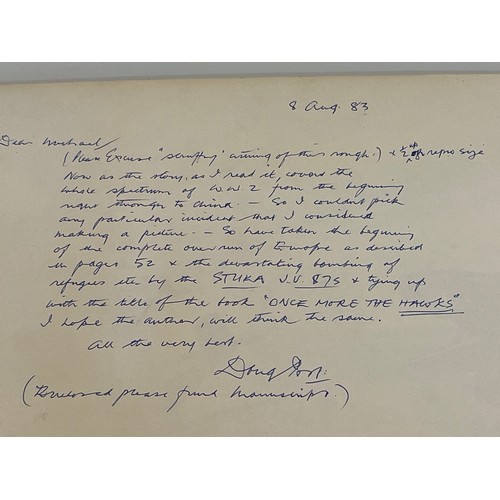 8 Aug. 83
Dear Michael
(Please Excuse "scruffy" writing of this rough.) x ½ up of repro size
Now as the story, as I read it, covers the
whole spectrum of WW2 from the begining
right through to China. - So I couldn't pick
any particular incident that I considered
making a picture. - So have taken the begining
of the complete over run of Europe as described
in pages 52 & the devastating bombing of
refugees etc by the STUKA J.U. 87s & tying up
with the title of the book "ONCE MORE THE HAWKS"
I hope the author, will think the same.
All the very best.
Doug
(Enclosed please find Manuscript.)